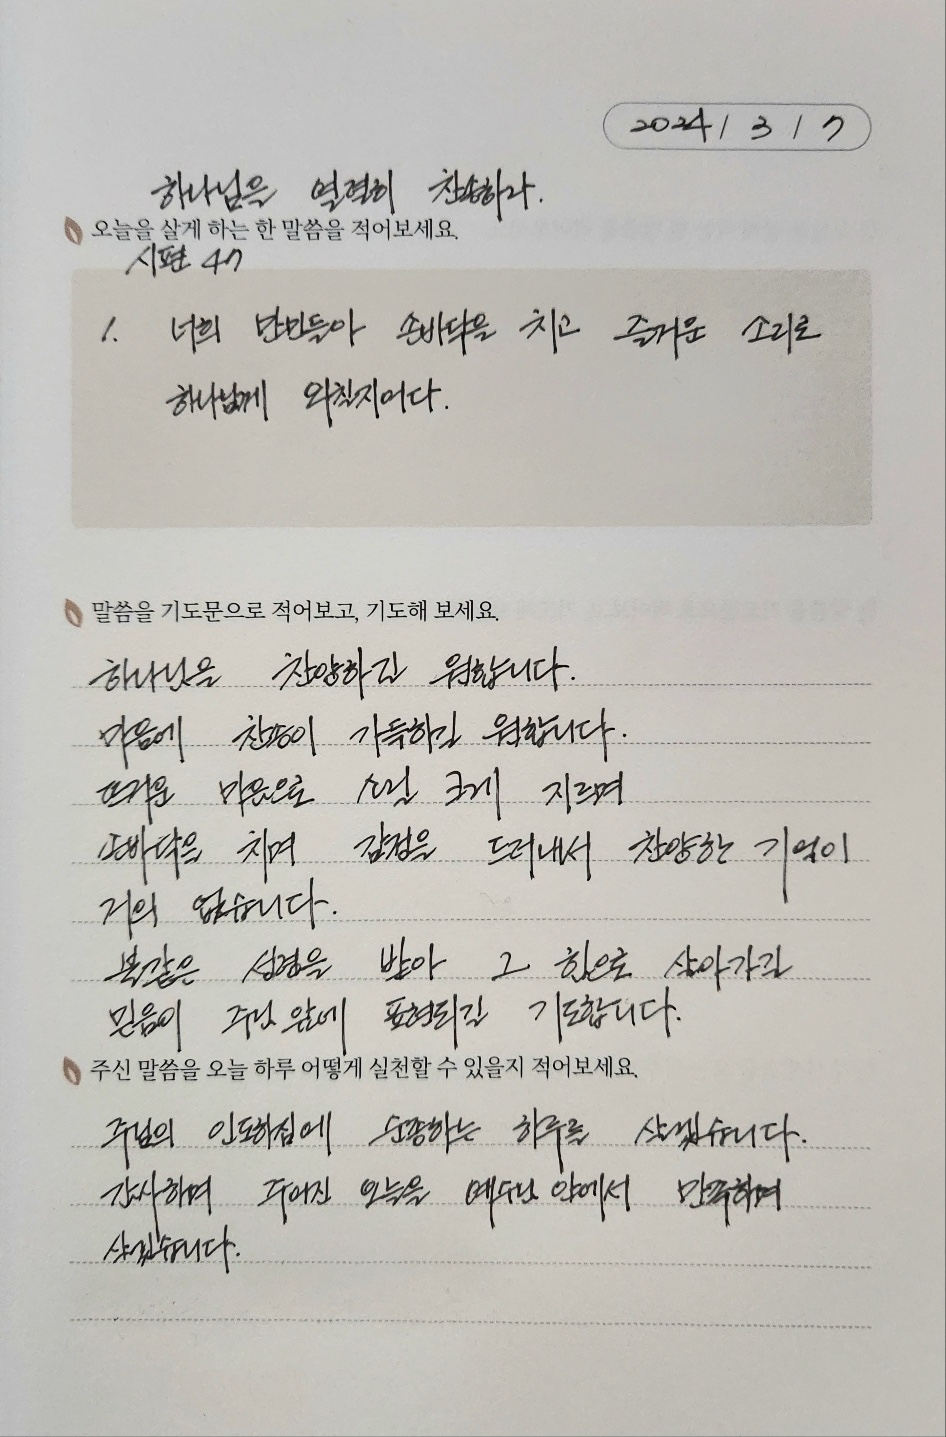 2024 / 3 / 7
하나님을 열렬히 찬송하라.
오늘을 살게 하는 한 말씀을 적어보세요.
시편 47
1. 너희 만민들아 손바닥을 치고 즐거운 소리로
하나님께 외칠지어다.
말씀을 기도문으로 적어보고, 기도해 보세요.
하나님을 찬양하길 원합니다.
마음에 찬송이 가득하길 원합니다.
뜨거운 마음으로 소릴 크게 지르며
손바닥을 치며 감정을 드러내서 찬양한 기억이
거의 없습니다.
불같은 성령을 받아 그 힘으로 살아가길
믿음이 주님 앞에 표현되길 기도합니다.
주신 말씀을 오늘 하루 어떻게 실천할 수 있을지 적어보세요.
주님의 인도하심에 순종하는 하루를 살겠습니다.
감사하며 주어진 오늘을 예수님 안에서 만족하며
살겠습니다.